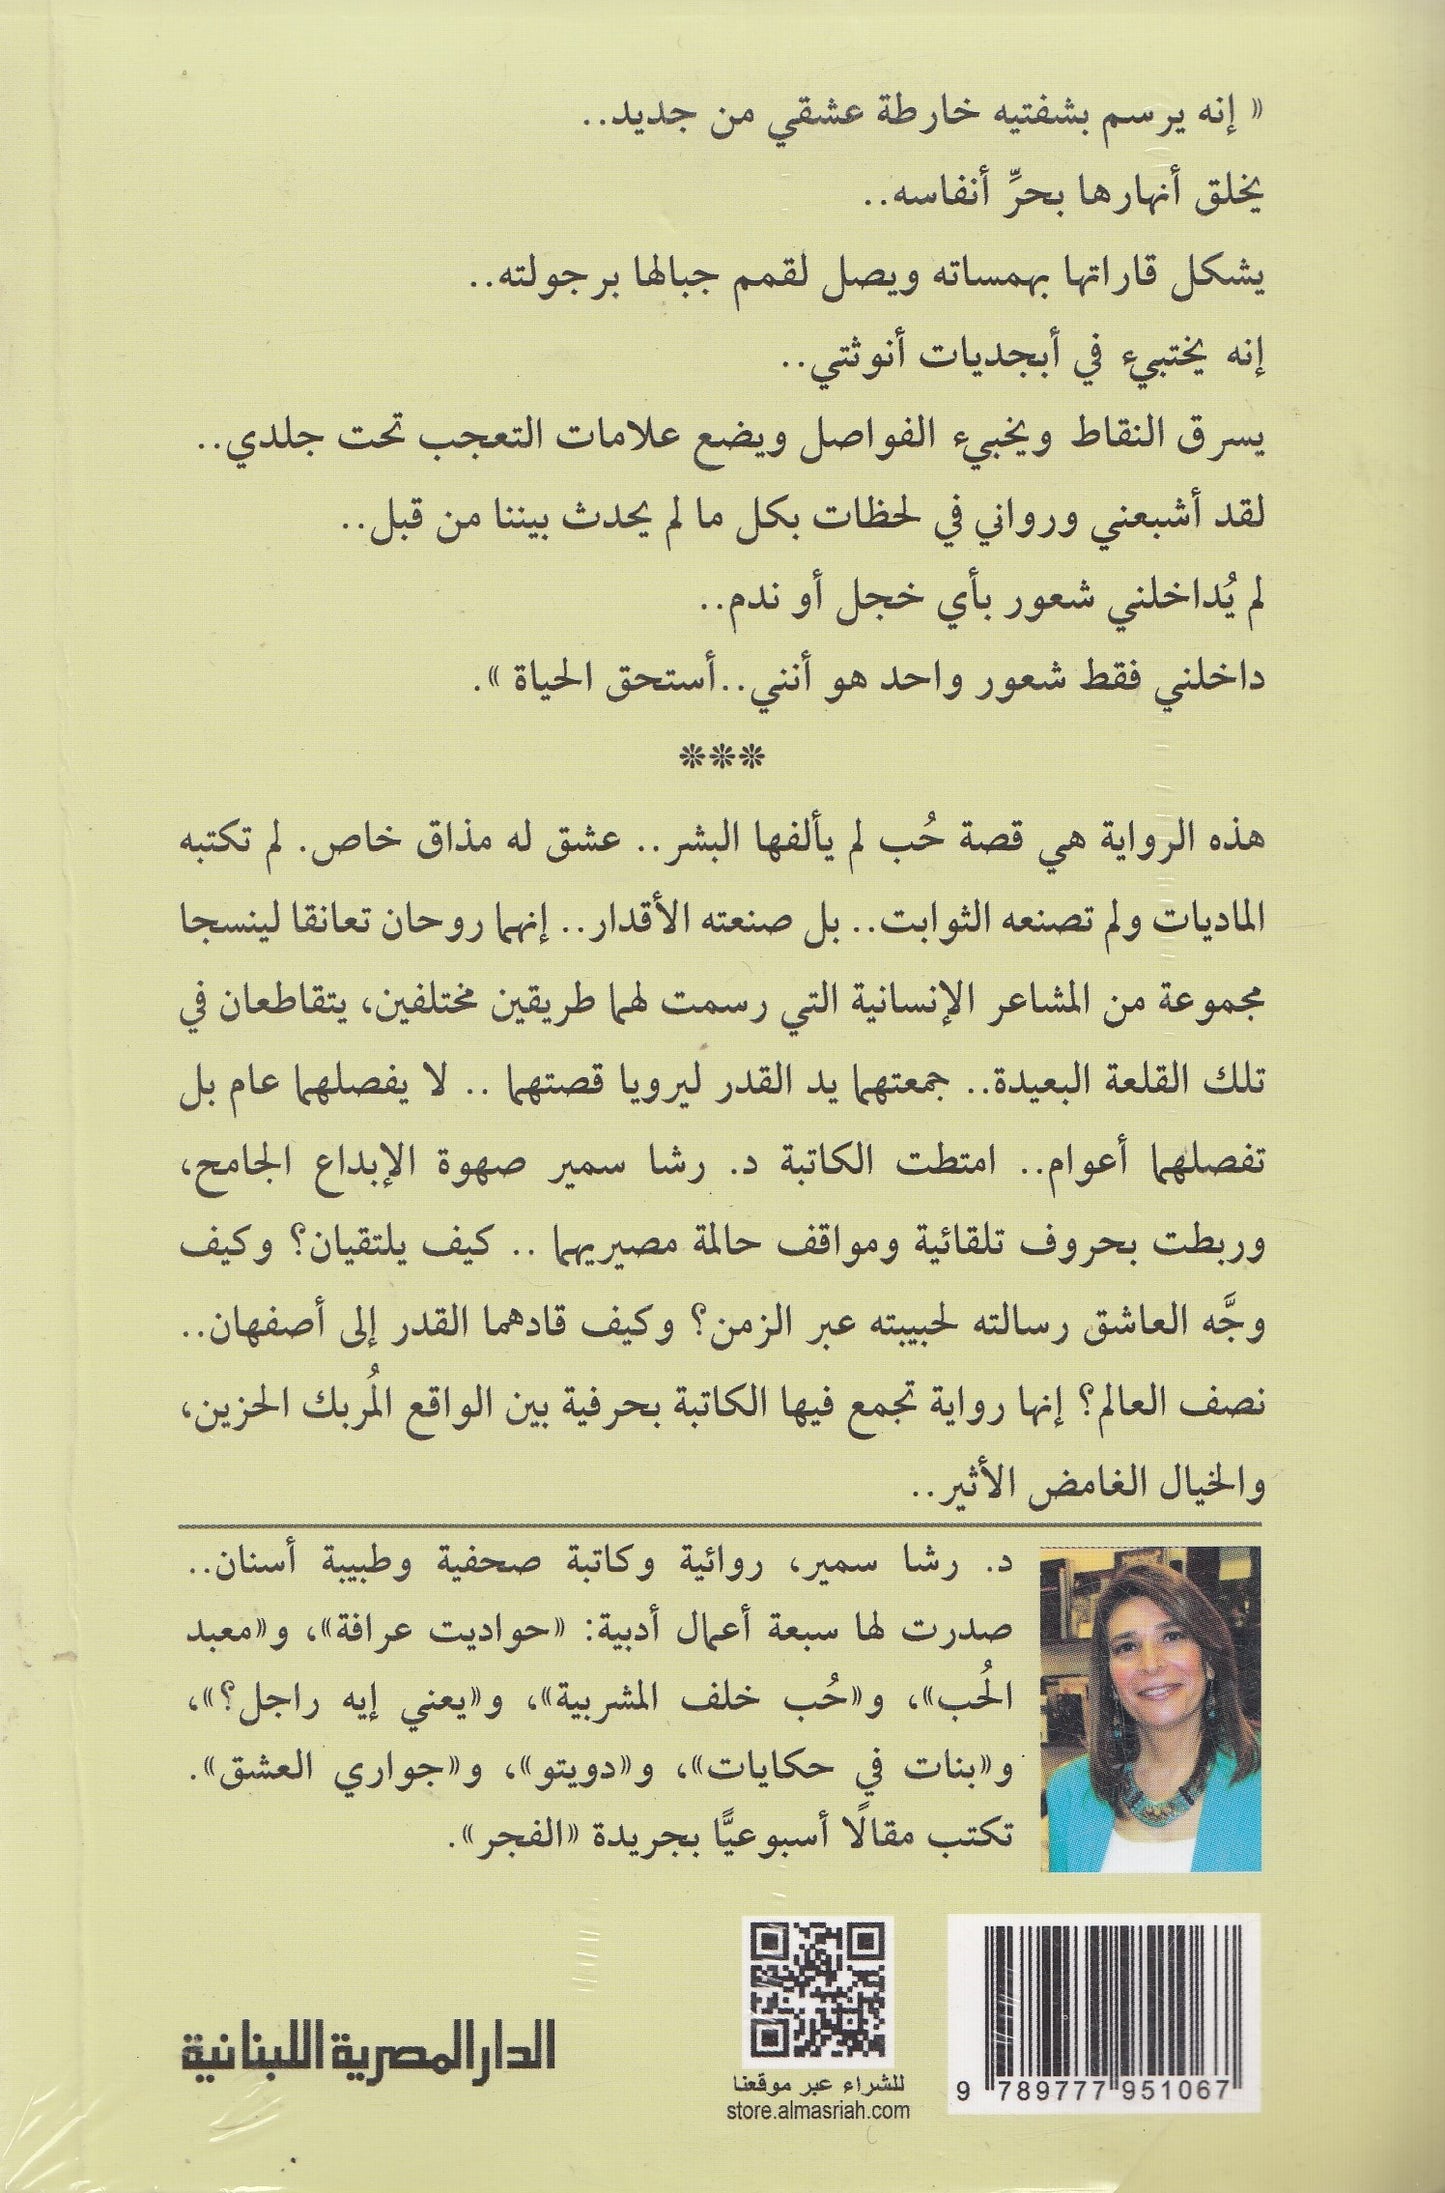 « إنه يرسم بشفتيه خارطة عشقي من جديد..
يخلق أنهارها بحرِّ أنفاسه..
يشكل قاراتها بهمساته ويصل لقمم جبالها برجولته..
إنه يختبيء في أبجديات أنوثتي..
يسرق النقاط ويخبيء الفواصل ويضع علامات التعجب تحت جلدي..
لقد أشبعني ورواني في لحظات بكل ما لم يحدث بيننا من قبل..
لم يُداخلني شعور بأي خجل أو ندم..
داخلني فقط شعور واحد هو أنني..أستحق الحياة ».
***
هذه الرواية هي قصة حُب لم يألفها البشر.. عشق له مذاق خاص. لم تكتبه
الماديات ولم تصنعه الثوابت.. بل صنعته الأقدار.. إنهما روحان تعانقا لينسجا
مجموعة من المشاعر الإنسانية التي رسمت لهما طريقين مختلفين، يتقاطعان في
تلك القلعة البعيدة.. جمعتهما يد القدر ليرويا قصتهما .. لا يفصلهما عام بل
تفصلهما أعوام.. امتطت الكاتبة د. رشا سمير صهوة الإبداع الجامح،
وربطت بحروف تلقائية ومواقف حالمة مصيريهما .. كيف يلتقيان؟ وكيف
وجَّه العاشق رسالته لحبيبته عبر الزمن؟ وكيف قادهما القدر إلى أصفهان..
نصف العالم؟ إنها رواية تجمع فيها الكاتبة بحرفية بين الواقع المُربك الحزين،
والخيال الغامض الأثير..
د. رشا سمير، روائية وكاتبة صحفية وطبيبة أسنان..
صدرت لها سبعة أعمال أدبية: «حواديت عرافة»، و«معبد
الحُب»، و«حُب خلف المشربية»، و«يعني إيه راجل؟»،
و«بنات في حكايات»، و«دويتو»، و«جواري العشق».
تكتب مقالًا أسبوعيًّا بجريدة «الفجر».
الدار المصرية اللبنانية
للشراء عبر موقعنا
store.almasriah.com
9 789777 951067